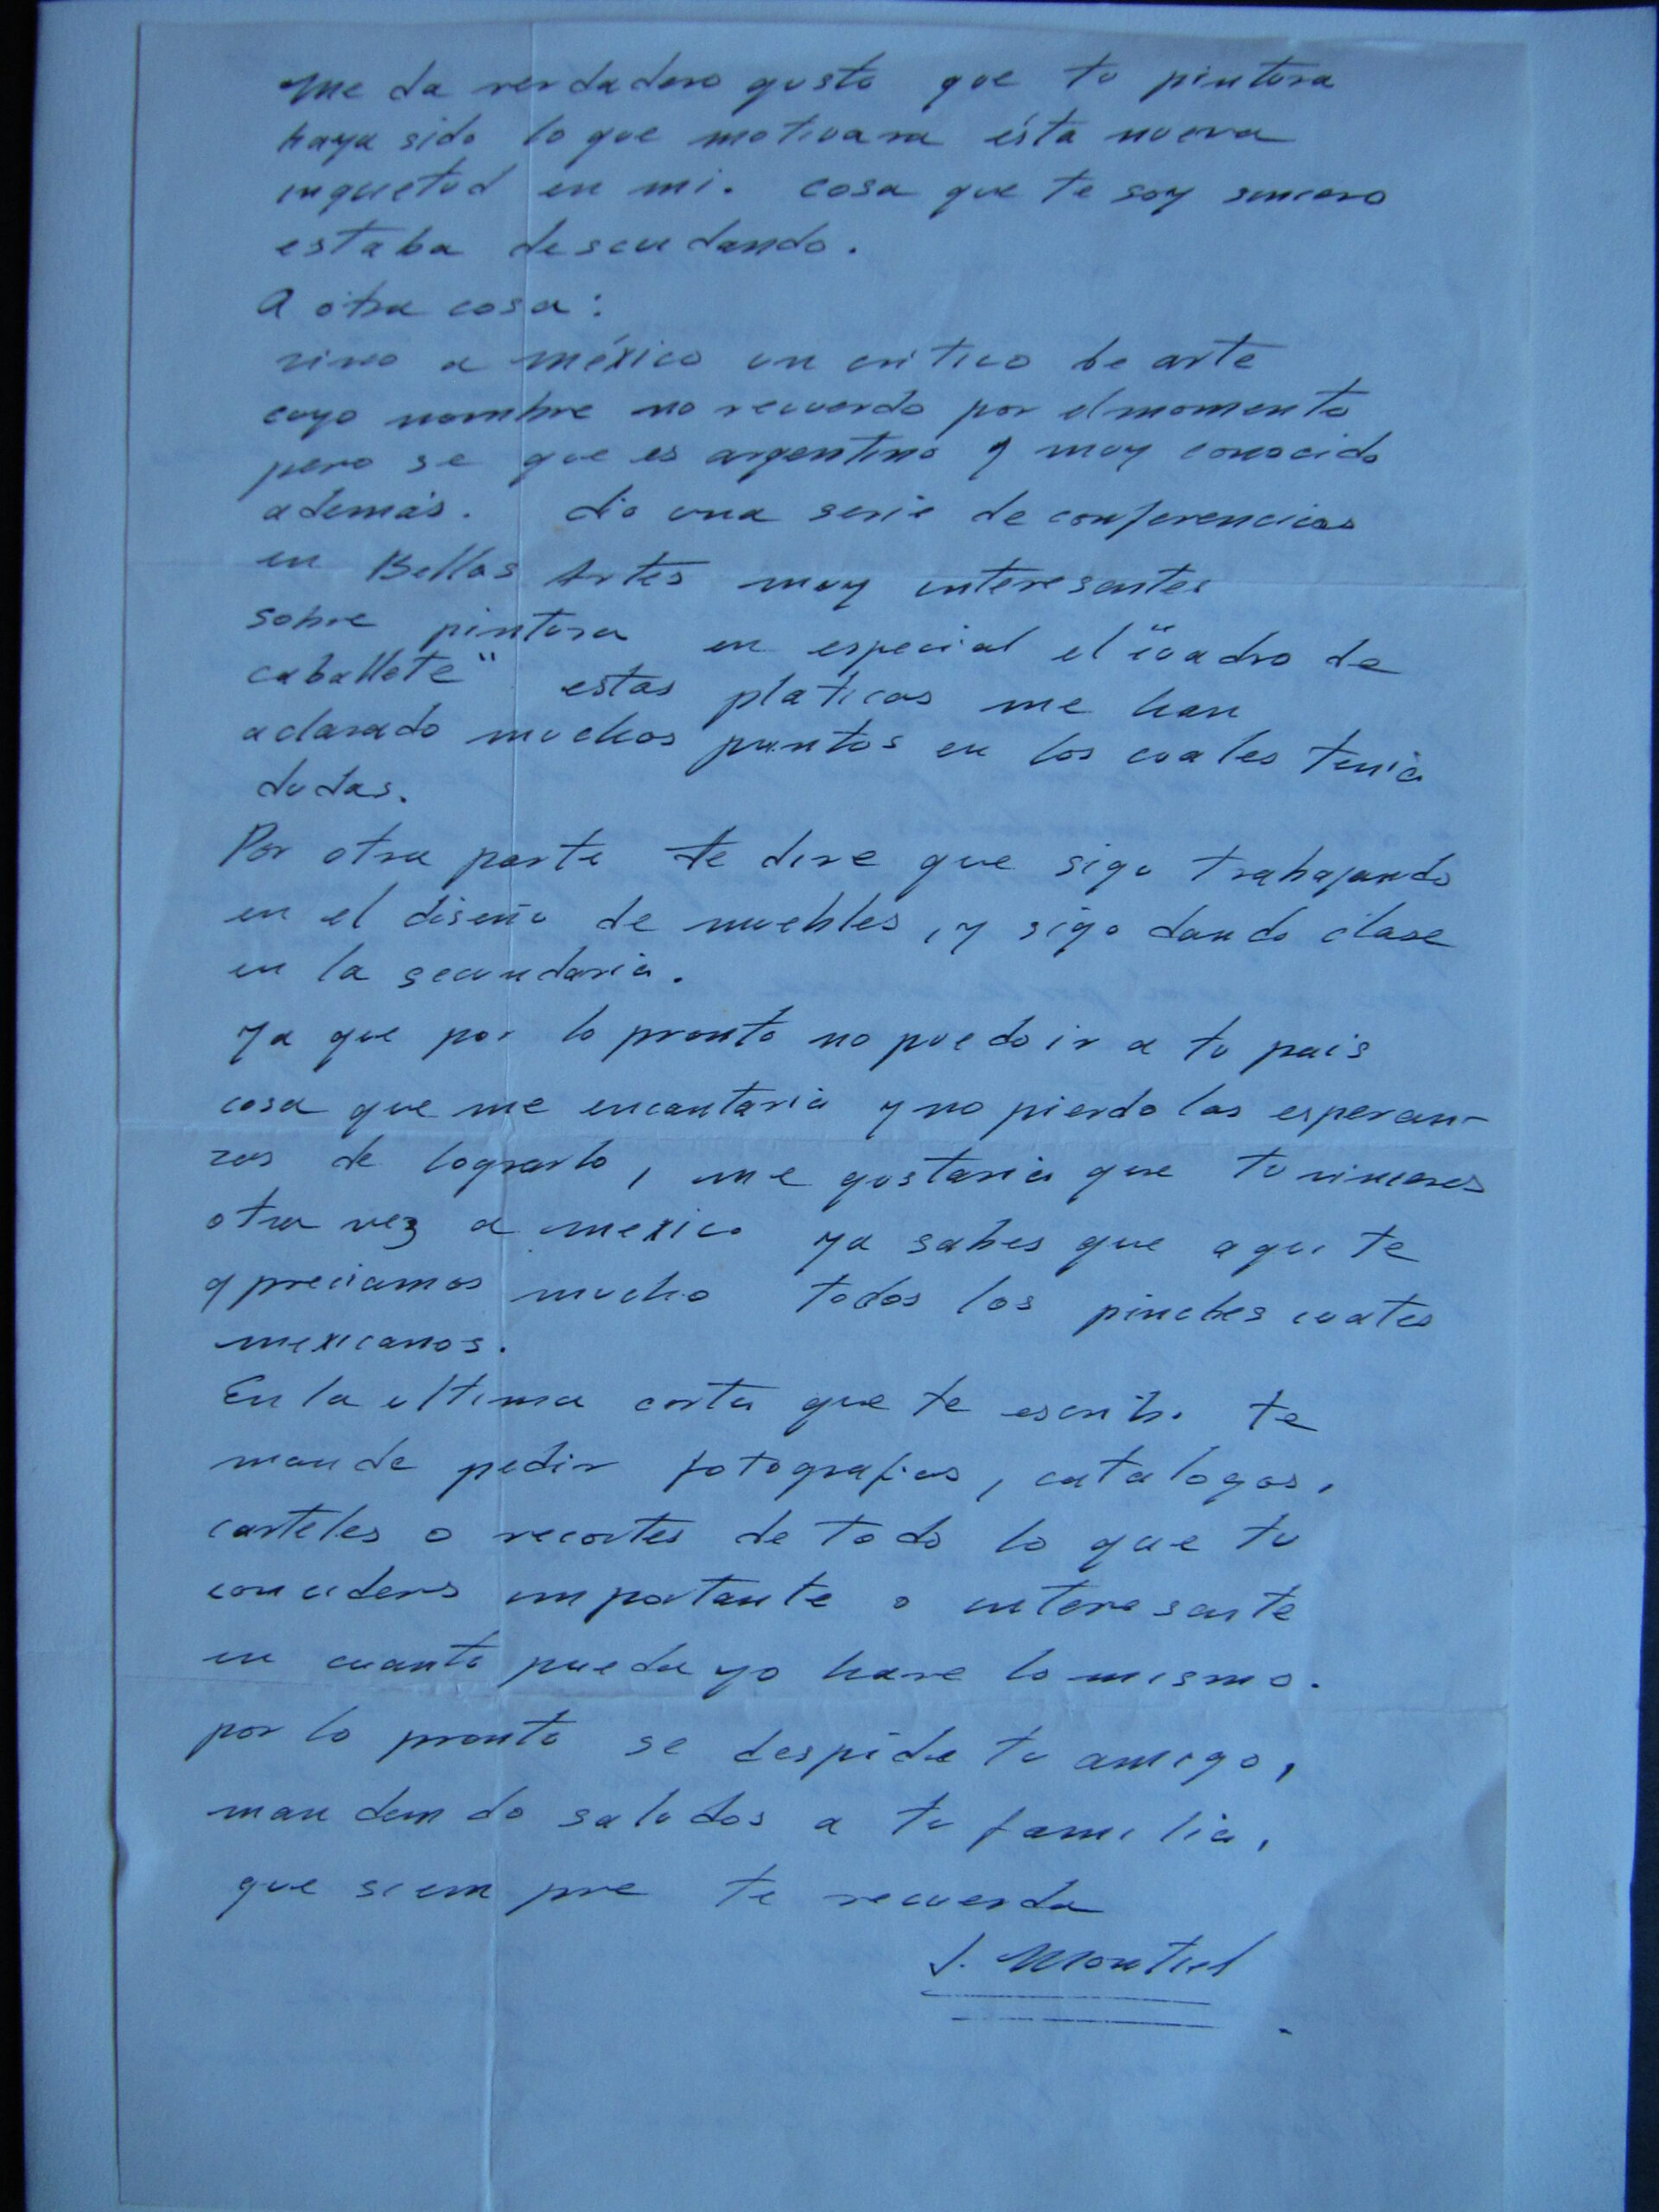 Me da verdadero gusto que tu pintura
haya sido lo que motivara ésta nueva
inquietud en mi. cosa que te soy sincero
estaba descuidando.
A otra cosa:
vino a méxico un critico de arte
cuyo nombre no recuerdo por el momento
pero se que es argentino y muy conocido
además. dio una serie de conferencias
en Bellas Artes muy interesantes
sobre pintura en especial el "cuadro de
caballete" estas platicas me han
aclarado muchos puntos en los cuales tenia
dudas.
Por otra parte te dire que sigo trabajando
en el diseño de muebles, y sigo dando clase
en la secundaria.
Ya que por lo pronto no puedo ir a tu pais
cosa que me encantaria y no pierdo las esperan-
zas de lograrlo, me gustaria que tu vinieras
otra vez a mexico ya sabes que aqui te
apreciamos mucho todos los pinches cuates
mexicanos.
En la ultima carta que te escribi te
mande pedir fotografias, catalogos,
carteles o recortes de todo lo que tu
importante o interesante
en cuanto pueda yo hare lo mismo.
por lo pronto se despide tu amigo,
mandando saludos a tu familia,
que siempre te recuerda
J. Montiel